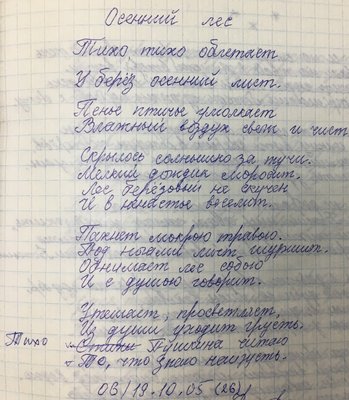 Осенний лес
Тихо тихо облетает
У берёз осенний лист.
Пенье птичье умолкает
Влажный воздух свеж и чист
Скрылось солнышко за тучи.
Мелкий дождик моросит.
Лес берёзовый не скучен
И в ненастье веселит.
Пахнет мокрою травою.
Под ногами лист шуршит.
Обнимает лес собою
И с душою говорит.
Утешает, просветляет,
Из души уходит грусть.
Тихо Стихи Пушкина читаю
Те, что знаю наизусть.
06/19.10.05 (26)